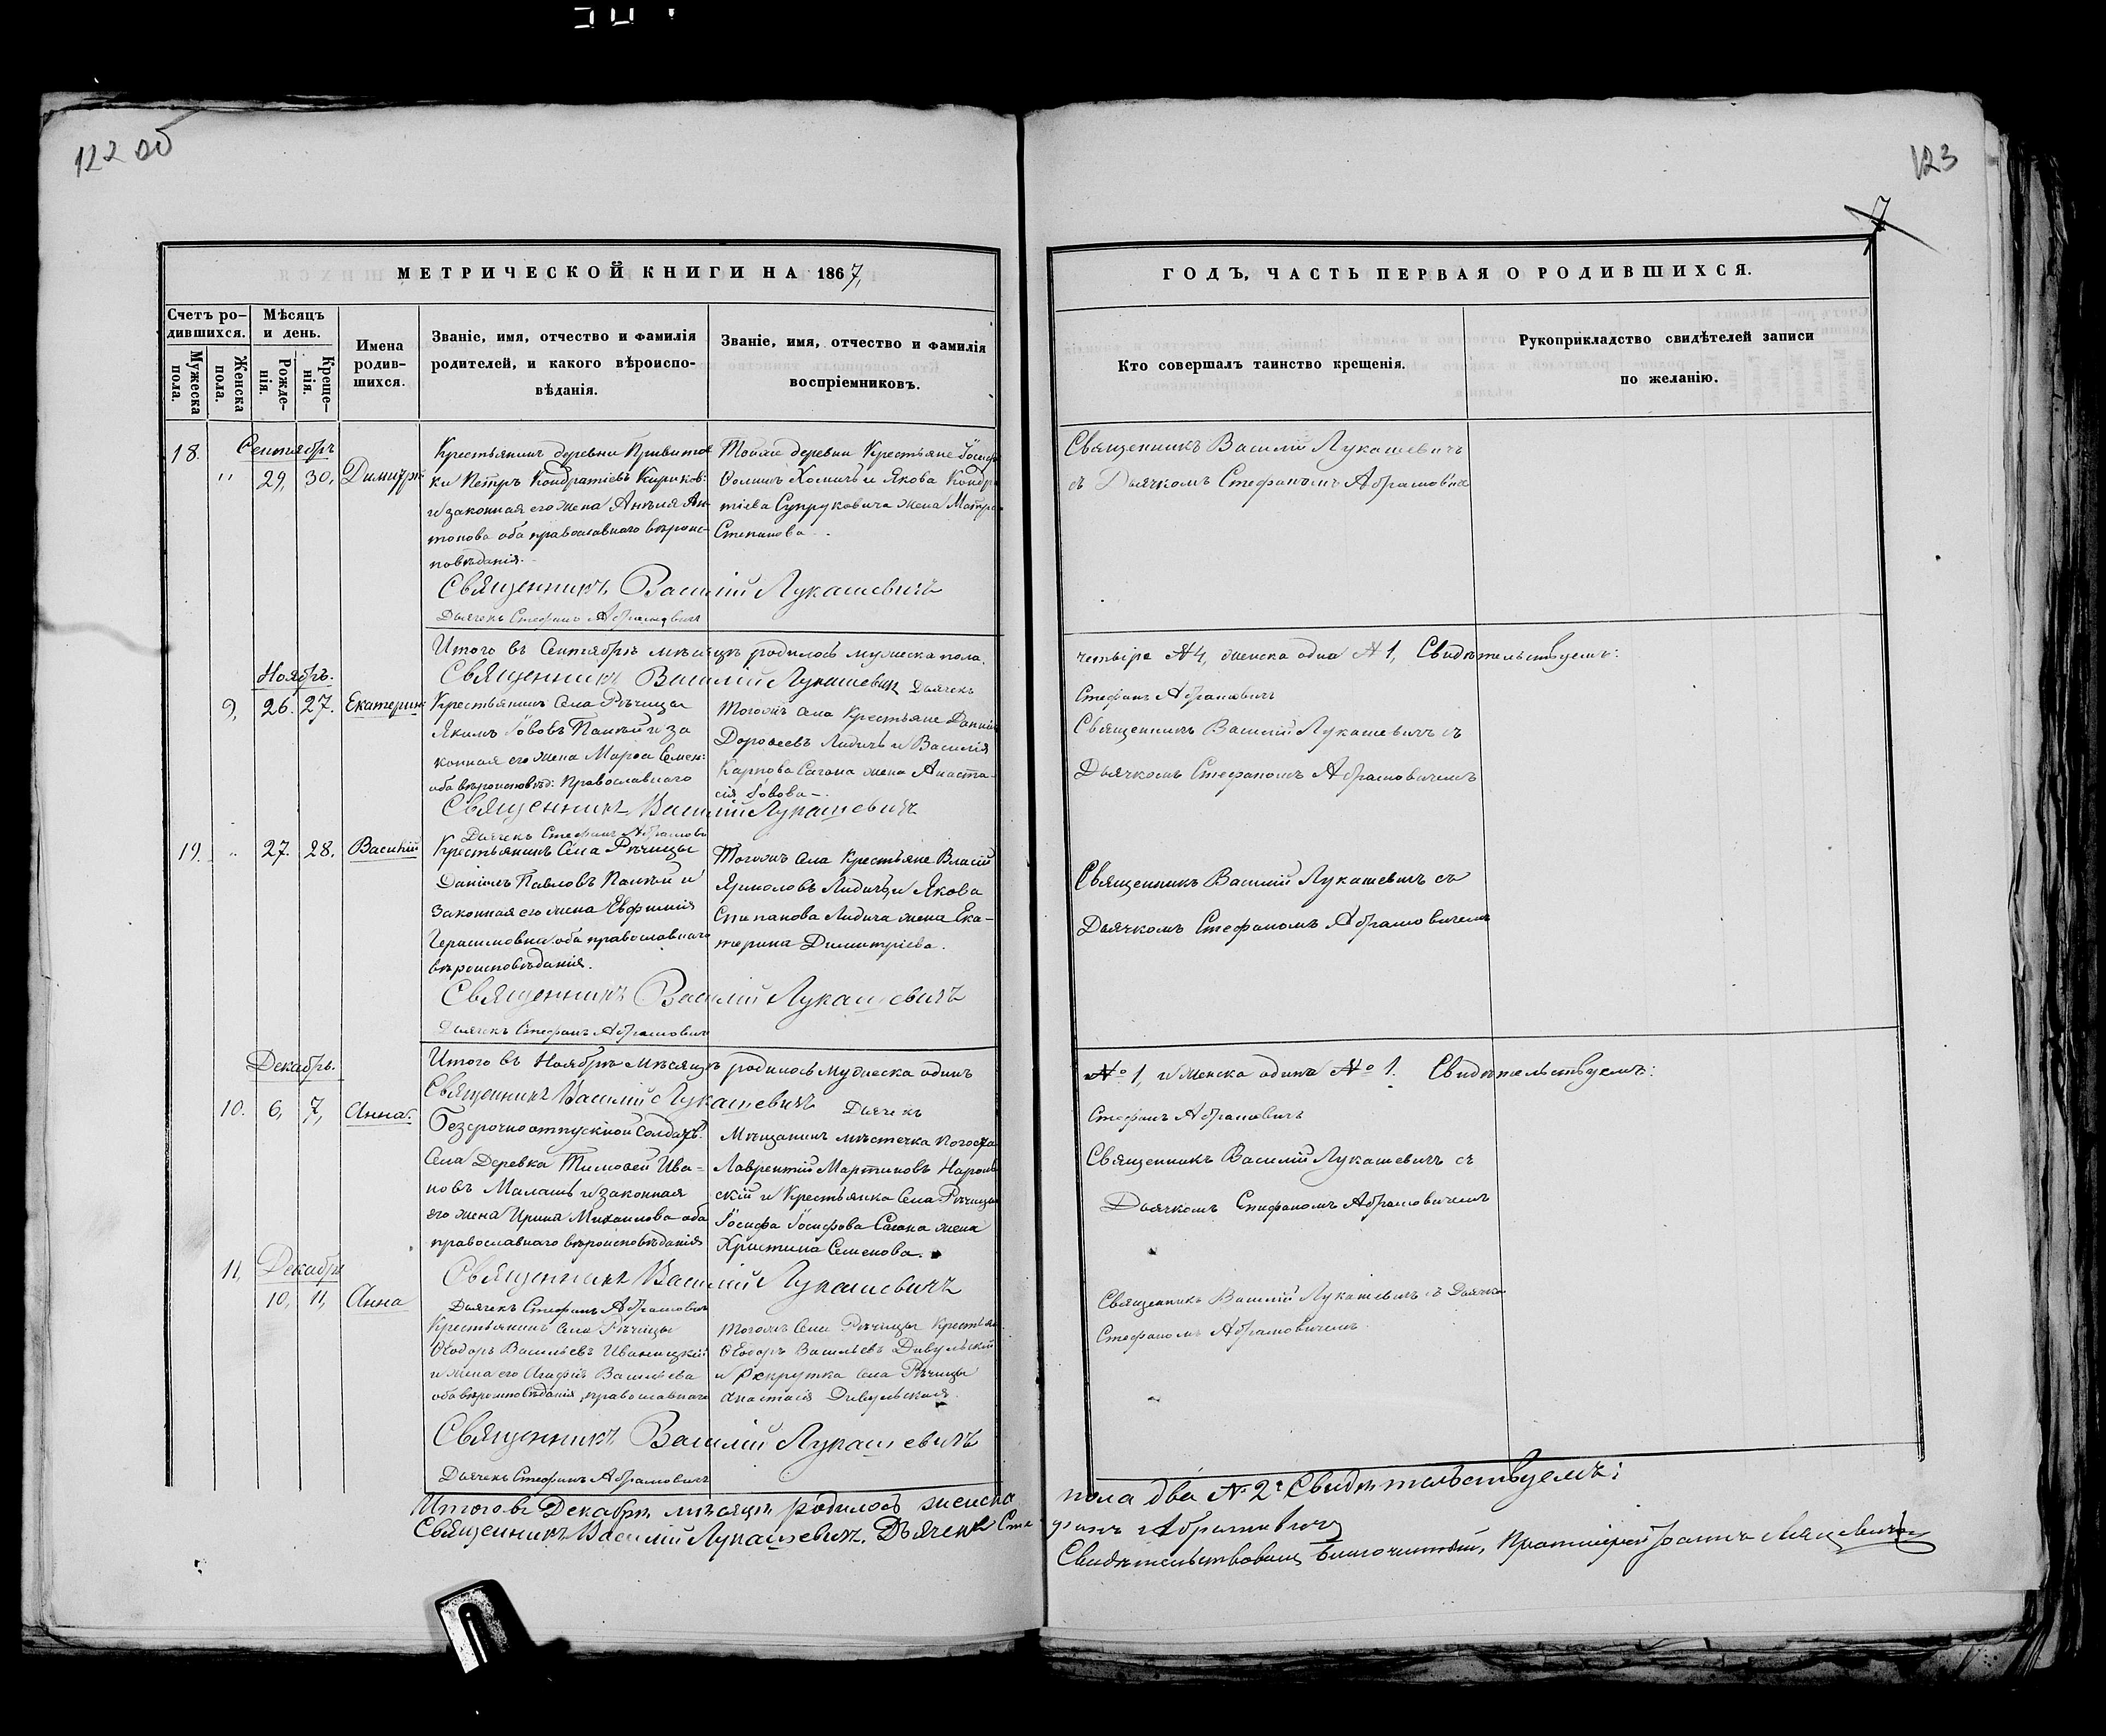 122 об
123
7
МЕТРИЧЕСКОЙ КНИГИ НА 1867,
ГОДЪ, ЧАСТЬ ПЕРВАЯ О РОДИВШИХСЯ.
Счетъ ро-
дившихся.
Мужеска пола.
Женска пола.
Мѣсяцъ
и день.
Рожде-
нія.
Креще-
нія.
Имена
родив-
шихся.
Званіе, имя, отчество и фамилія
родителей, и какого вѣроиспо-
вѣданія.
Званіе, имя, отчество и фамилія
воспріемниковъ.
Кто совершалъ таинство крещенія.
Рукоприкладство свидѣтелей записи
по желанію.
Сентябрь
18. " 29, 30, Димитрій
Крестьянинъ деревни
ки Петръ Кондратіевъ
и законная его жена Ан-
тонова оба православнаго вѣроис-
повѣданія.
Тойже деревни Крестьяне
и Якова Кондра
тіева Супруковича жена
Степанова.
Священникъ Василій Лукашевичъ
съ Дьячкомъ Стефаномъ
Священникъ Василій Лукашевичъ
Дьячекъ Стефанъ Абрамовичъ
Итого въ Сентябрѣ мѣсяцѣ родилось мужеска пола.
четыре №4, женска одна №1, Свидѣтельствуемъ:
Священникъ Василій Лукашевичъ Дьячекъ
Стефанъ Абрамовичъ
Ноябрь.
9, 26. 27. Екатерин:
Крестьянинъ Села Рѣчицы
Якимъ и за
конная его жена Марѳа Семен:
оба вѣроисповѣд: Православнаго
Тогожъ села Крестьяне
Дороѳеевъ Лидичъ и Василія
Карпова Сагана жена Анаста-
сія
Священникъ Василій Лукашевичъ съ
Дьячкомъ Стефаномъ Абрамовичемъ
Священникъ Василій Лукашевичъ
Дьячекъ Стефанъ
19. " 27. 28. Василій
Крестьянинъ Села Рѣчицы
Даніилъ Павловъ и
Законная его жена Евфимія
Герасимовна оба православнаго
вѣроисповѣданія.
Тогожъ села Крестьяне Власій
Лидичъ, и Якова
Степанова Лидича жена Ека-
терина Димитріева.
Священникъ Василій Лукашевичъ съ
Дьячкомъ Стефаномъ Абрамовичемъ
Священникъ Василій Лукашевичъ
Дьячекъ Стефанъ Абрамовичъ
Итого въ Ноябрѣ мѣсяцѣ родилось мужеска одинъ
№ 1, и женска одина № 1. Свидѣтельствуемъ:
Священникъ Василій Лукашевичъ Дьячекъ
Стефанъ Абрамовичъ
Декабрь.
10. 6, 7, Анна.
Безсрочноотпускной солдатъ.
Села Деревка Тимоѳей Ива-
новъ Малашъ и законная
его жена Ирина Михаилова оба
православнаго вѣроисповѣданія
Мѣщанинъ мѣстечка Погоста
Лаврентій Мартиновъ
скій и Крестьянка Села Рѣчицы
Іосифа Іосифова Сагана жена
Христина Семенова.
Священникъ Василій Лукашевичъ съ
Дьячкомъ Стефаномъ Абрамовичемъ
Священникъ Василій Лукашевичъ
Дьячекъ Стефанъ Абрамовичъ
Декабря
11, 10, 11, Анна
Крестьянинъ Села Рѣчицы
Ѳеодоръ Васильевъ Иваницкій
и жена его Агафія Васильева
оба вѣроисповѣданія православнаго
Тогожъ Села Рѣчицы
Ѳеодоръ Васильевъ Дивульскій
и Рекрутка села Рѣчицы
Анастасія Дивульская.
Священникъ Василій Лукашевичъ съ
Стефаномъ Абрамовичемъ
Священникъ Василій Лукашевичъ
Дьячекъ Стефанъ Абрамовичъ
Итого въ Декабрѣ мѣсяцѣ родилось женска
пола два №2. Свидѣтельствуемъ:
Священникъ Василій Лукашевичъ. Дьячекъ Сте
фанъ Абрамовичъ
Свидѣтельствовалъ Благочинный, Протоіерей Іоаннъ